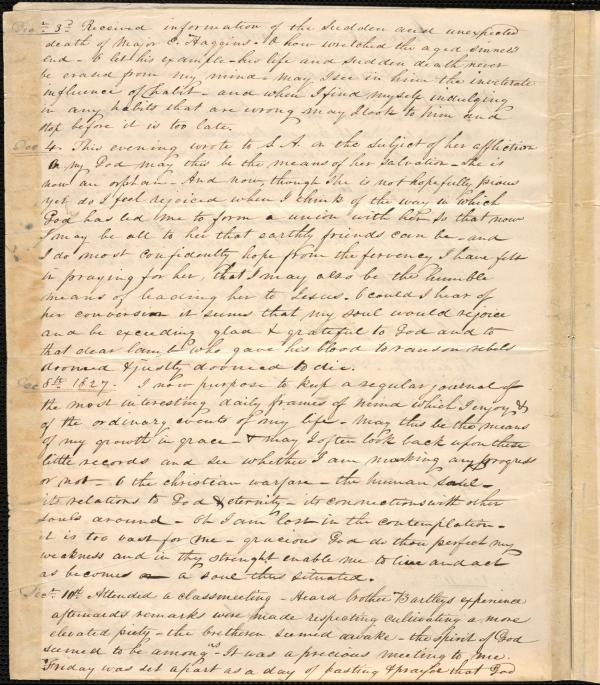 Decr 3d Received information of the sudden and unexpected
death of Major C. Haggins. O how wretched the aged sinners
end - O let his example - his life and sudden death never
be erased from my mind - may I see in him the inveterate
influence of habit - and when I find myself indulging
in any habits that are wrong may I look to him and
stop before it is too late.
Dec 4. This evening wrote to S. A. on the subject of her affliction
O my God may this be the means of her salvation - She is
now an orphan - And now, though She is not hopefully pious
yet do I feel rejoiced when I think of the way in which
God has led me to form a union with her, so that now
I may be all to her that earthly friends can be - and
I do most confidently hope from the fervency I have felt
in praying for her, that I may also be the humble
means of leading her to Jesus. O could I hear of
her conversion it seems that my soul would rejoice
and be exceeding glad & grateful to God and to
that dear lamb who gave his blood to ransom rebels
doomed & justly doomed to die.
Dec 8th 1827. I now purpose to keep a regular journal of
the most interesting daily frames of mind which I enjoy &
of the ordinary events of my life - May this be the means
of my growth in grace - & may I often look back upon these
little records and see whether I am making any progress
or not - O the christian warfare - the human soul -
its relations to God & eternity - its connections with other
souls around - Oh I am lost in the contemplation -
it is too vast for me - gracious God do thou perfect my
weakness and in thy strenght enable me to live and act
as becomes a soul thus situated.
Decr 10th Attended a classmeeting - Heard brother Bartleys experience
afterwards remarks were made respecting cultivating a more
elevated piety - the bretheren seemed awake - the spirit of God
seemed to be among us - It was a precious meeting to me.
Friday was set apart as a day of fasting & prayer that God